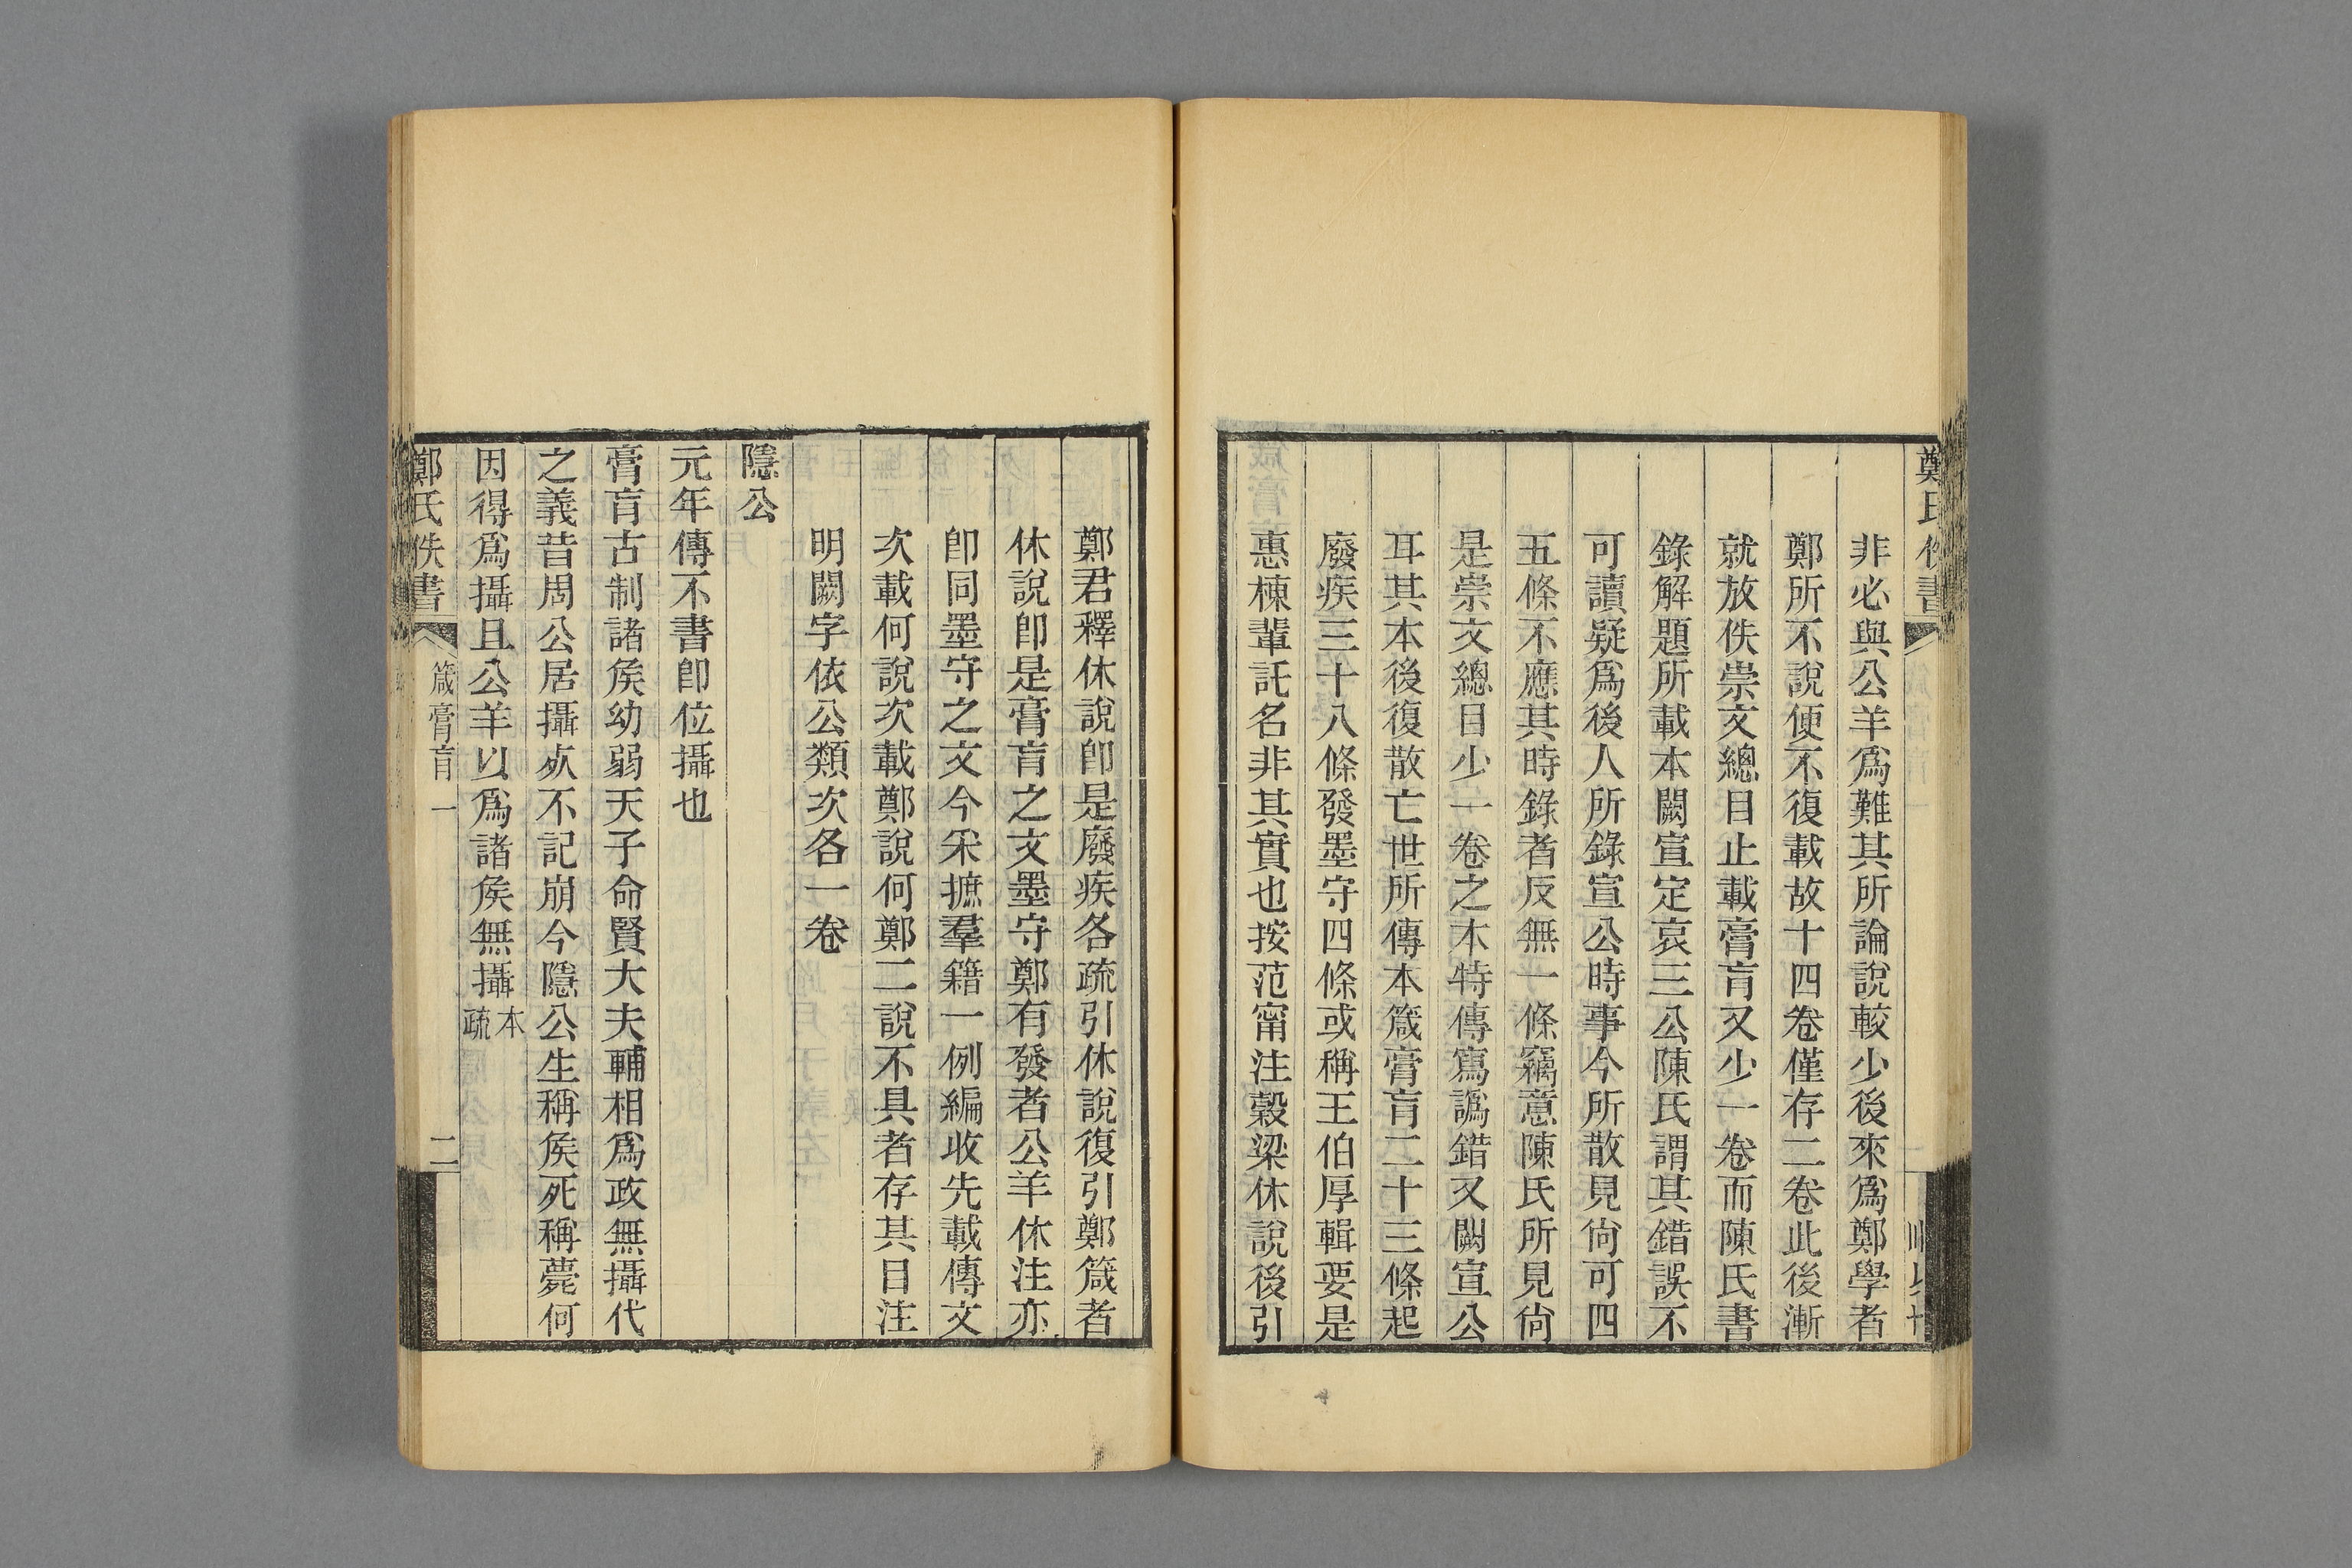 鄭氏佚書
非必與公羊爲難其所論說較少後來爲鄭學者
鄭所不說便不復載故十四卷僅存二卷此後漸
就放佚崇文總目止載膏肓又少一卷而陳氏書
錄解題所載本闕宣定哀三公陳氏謂其錯誤不
可讀疑爲後人所錄宣公時事今所散見尙可四
五條不應其時錄者反無一條竊意陳氏所見尙
是崇文總目少一卷之本特傳寫譌錯又闕宣公
耳其本後復散亡世所傳本箴膏肓二十三條起
廢疾三十八條發墨守四條或稱王伯厚輯要是
惠棟輩託名非其實也按范甯注穀梁休說後引
鄭君釋休說卽是廢疾各疏引休說復引鄭箴者
休說卽是膏肓之文墨守鄭有發者公羊休注亦
卽同墨守之文今采摭羣籍一例編收先載傳文
次載何說次載鄭說何鄭二說不具者存其目注
明闕字依公類次各一卷
隱公
元年傳不書卽位攝也
膏肓古制諸矦幼弱天子命賢大夫輔相爲政無攝代
之義昔周公居攝㱕不記崩今隱公生稱矦死稱薨何
因得爲攝且公羊以爲諸矦無攝本疏
鄭氏佚書
箴膏肓一
二